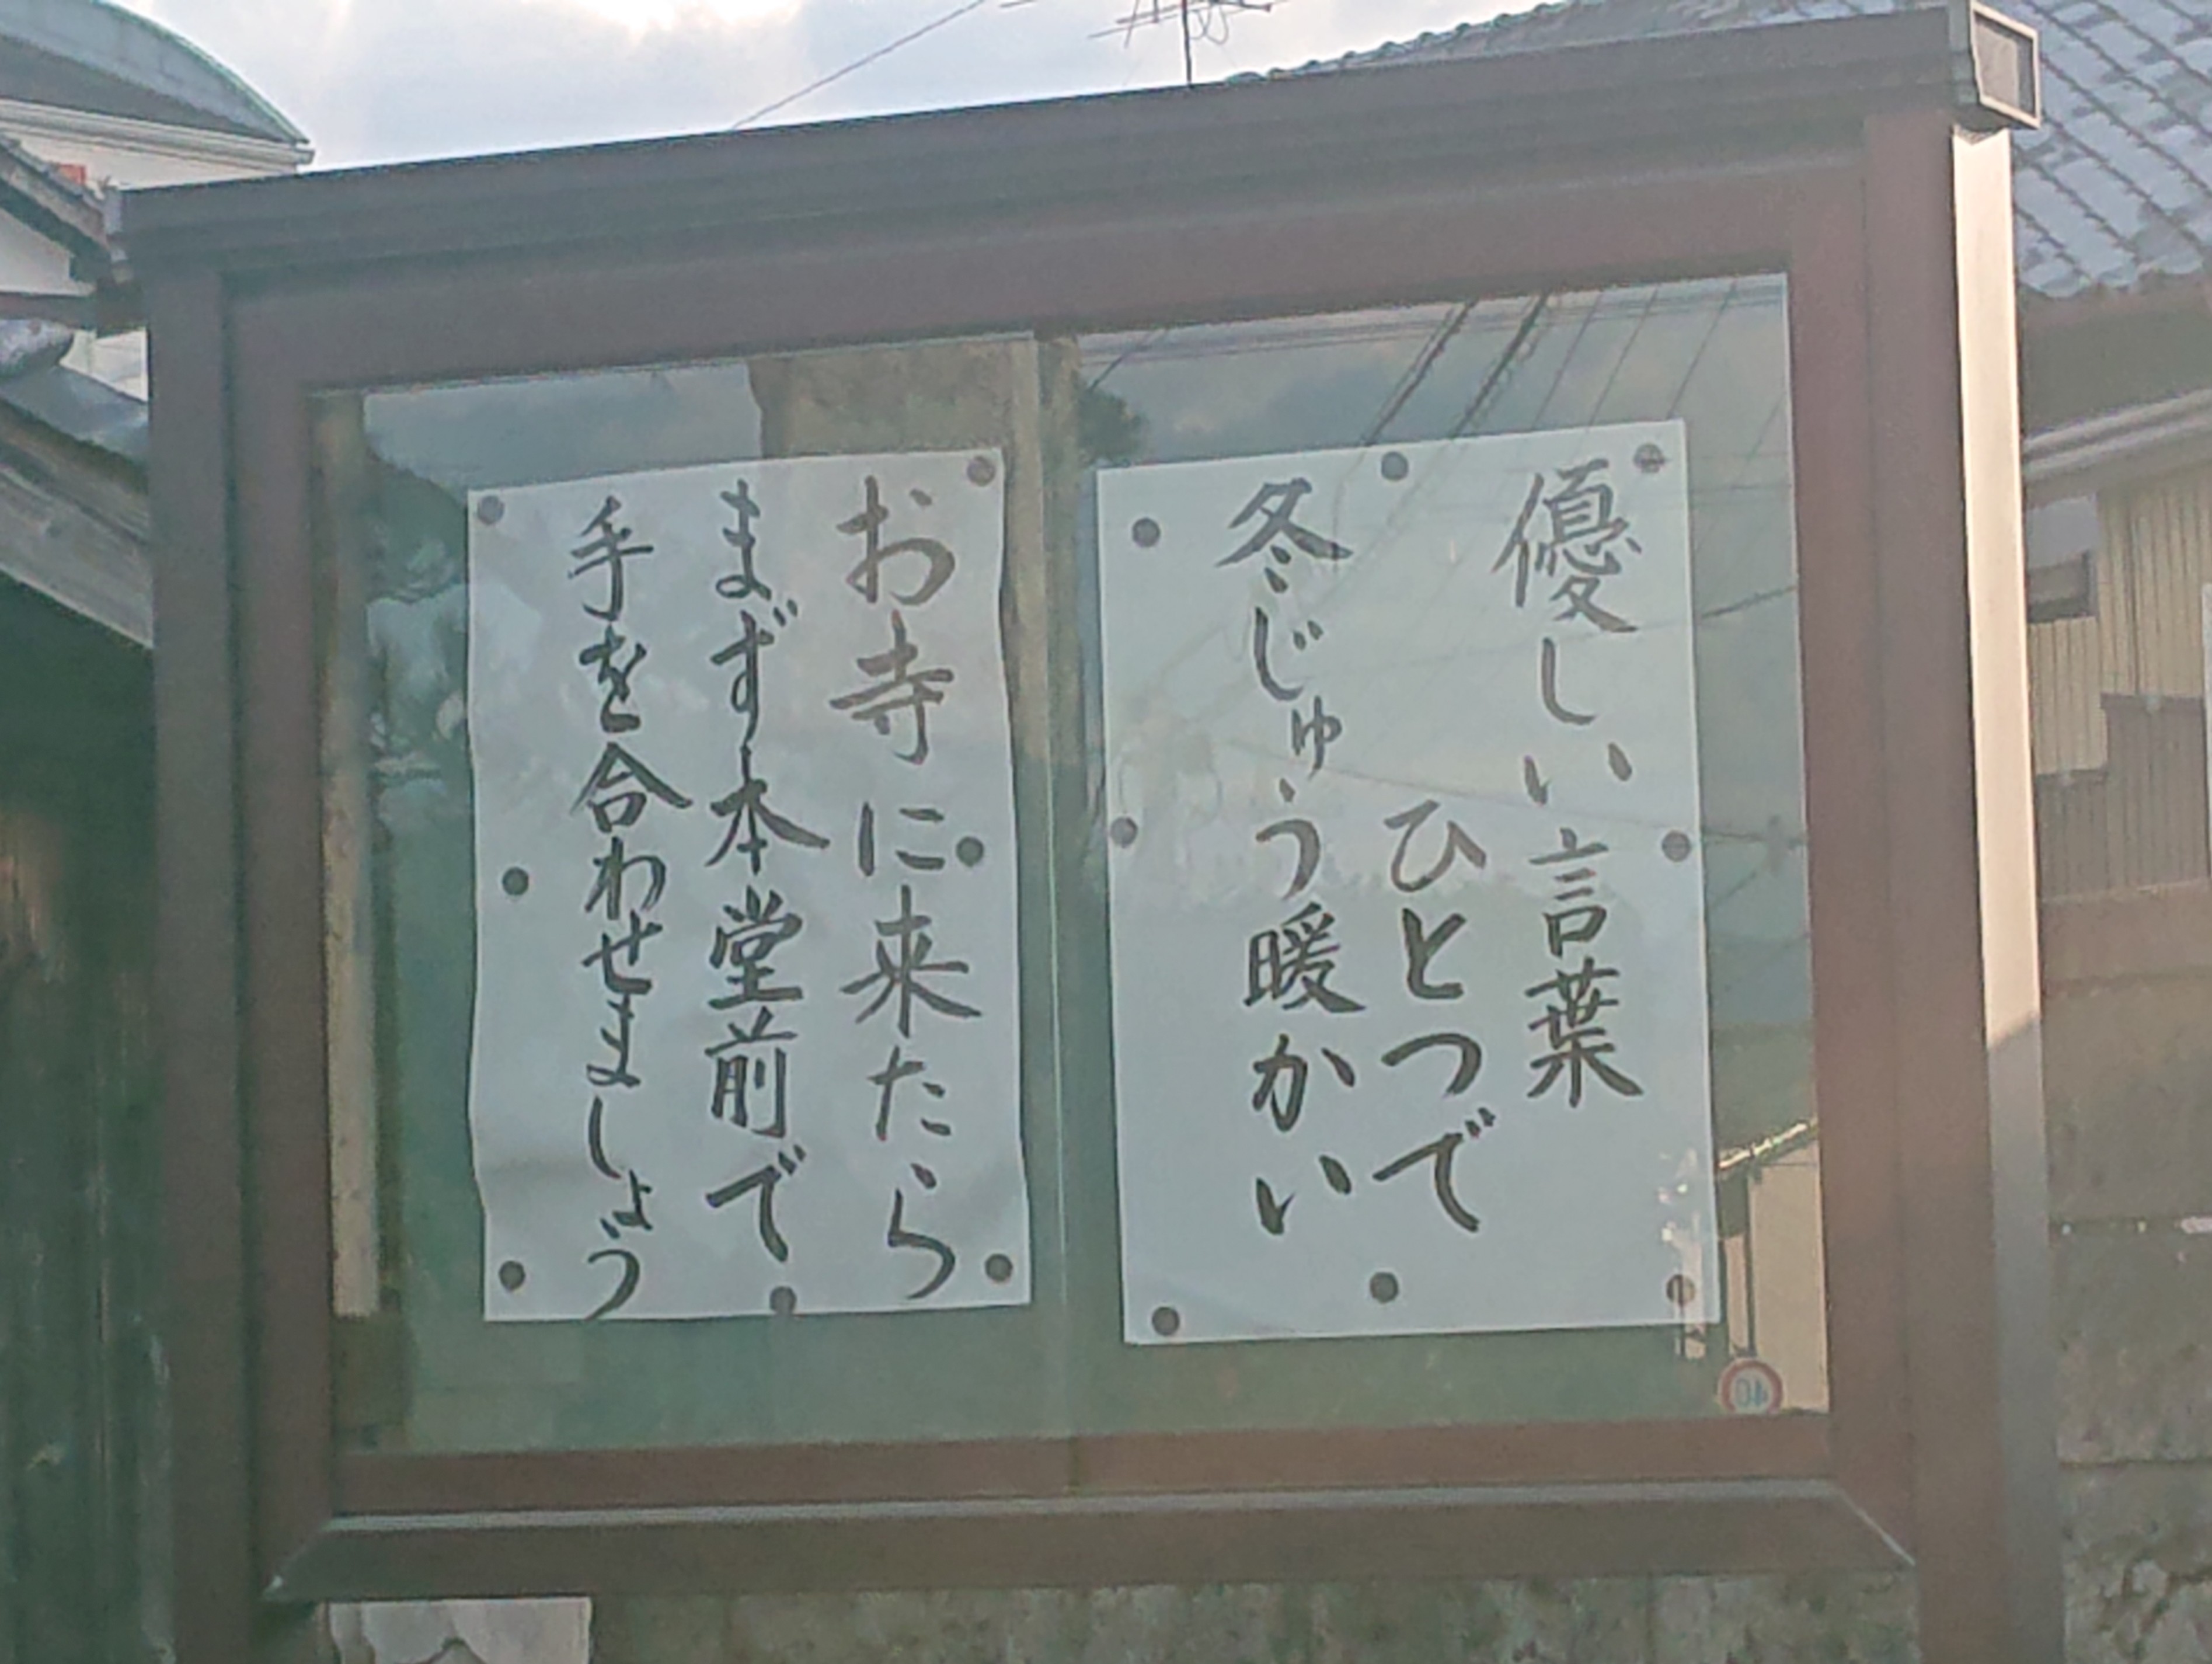 優しい言葉
ひとつで
冬じゅう暖かい
お寺に来たら
まず本堂前で
手を合わせましょう
40